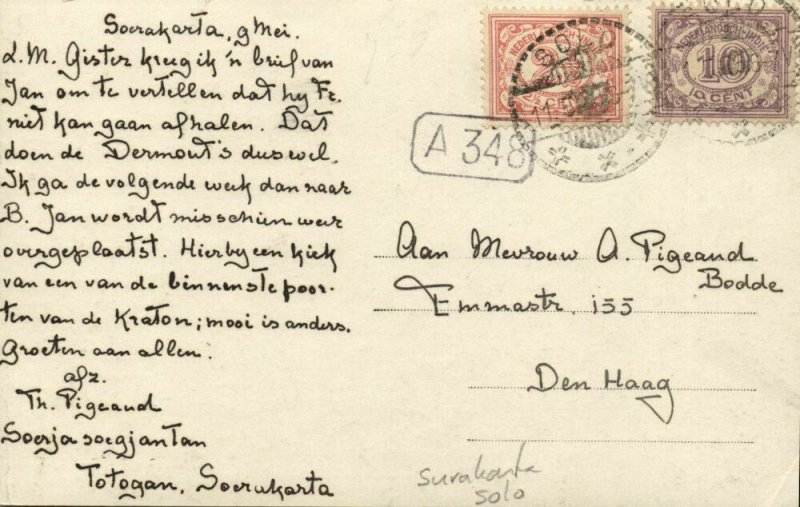 Soerakarta, 9 Mei.
L.M. Gister kreeg ik 'n brief van
Jan om te vertellen dat hy Fr.
niet kan gaan afhalen. Dat
doen de Dermout's dus wel.
Ik ga de volgende week dan naar
B. Jan wordt misschien weer
overgeplaatst. Hierby een kiek
van een van de binnenste poor-
ten van de Kraton; mooi is anders.
Groeten aan allen.
afz.
Th. Pigeaud
Soerja soegjantan
Totogan, Soerakarta
SOLO
10
10 CENT
A 348
Aan Mevrouw A. Pigeaud
Bodde
Emmastr. 155
Den Haag
Surakarta
Solo